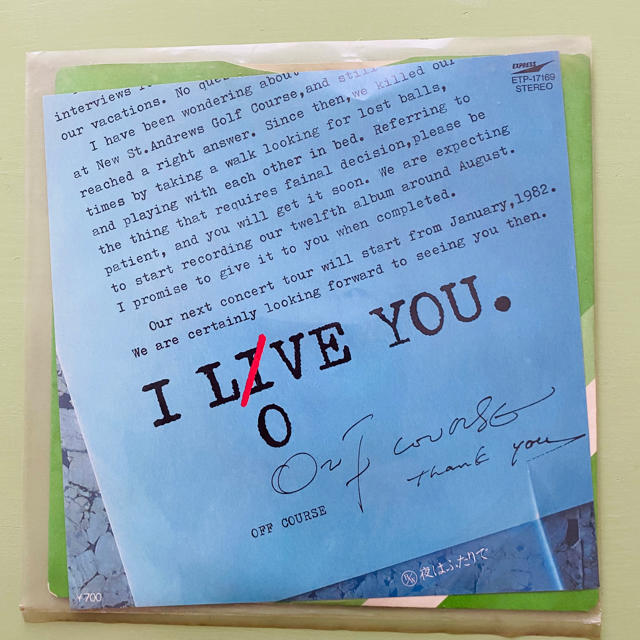 EXPRESS
ETP-17169
STEREO
interviews
our vacations. No
I have been wondering about
at New St.Andrews Golf Course,and still
reached a right answer. Since then,we killed our
times by taking a walk looking for lost balls,
and playing with each other in bed. Referring to
the thing that requires fainal decision,please be
patient, and you will get it soon. We are expecting
to start recording our twelfth album around August.
I promise to give it to you when completed.
Our next concert tour will start from January,1982.
We are certainly looking forward to seeing you then.
I LIVE YOU.
O
Off course
Thank you
OFF COURSE
B/W 夜はふたりで
¥700